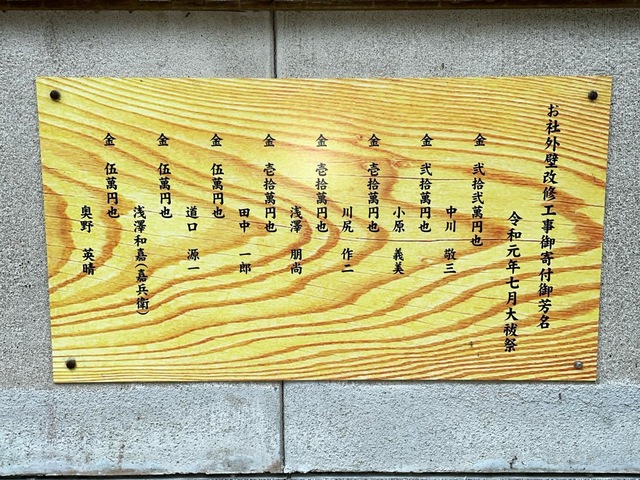 お社外壁改修工事御寄付御芳名
令和元年七月大祓祭
金 弐拾弐萬円也
中川 敬三
金 弐拾萬円也
小原 義美
金 壱拾萬円也
川尻 作二
金 壱拾萬円也
浅澤 朋尚
金 壱拾萬円也
田中 一郎
金 伍萬円也
道口 源一
金 伍萬円也
浅澤和嘉(嘉兵衛)
金 伍萬円也
奥野 英晴